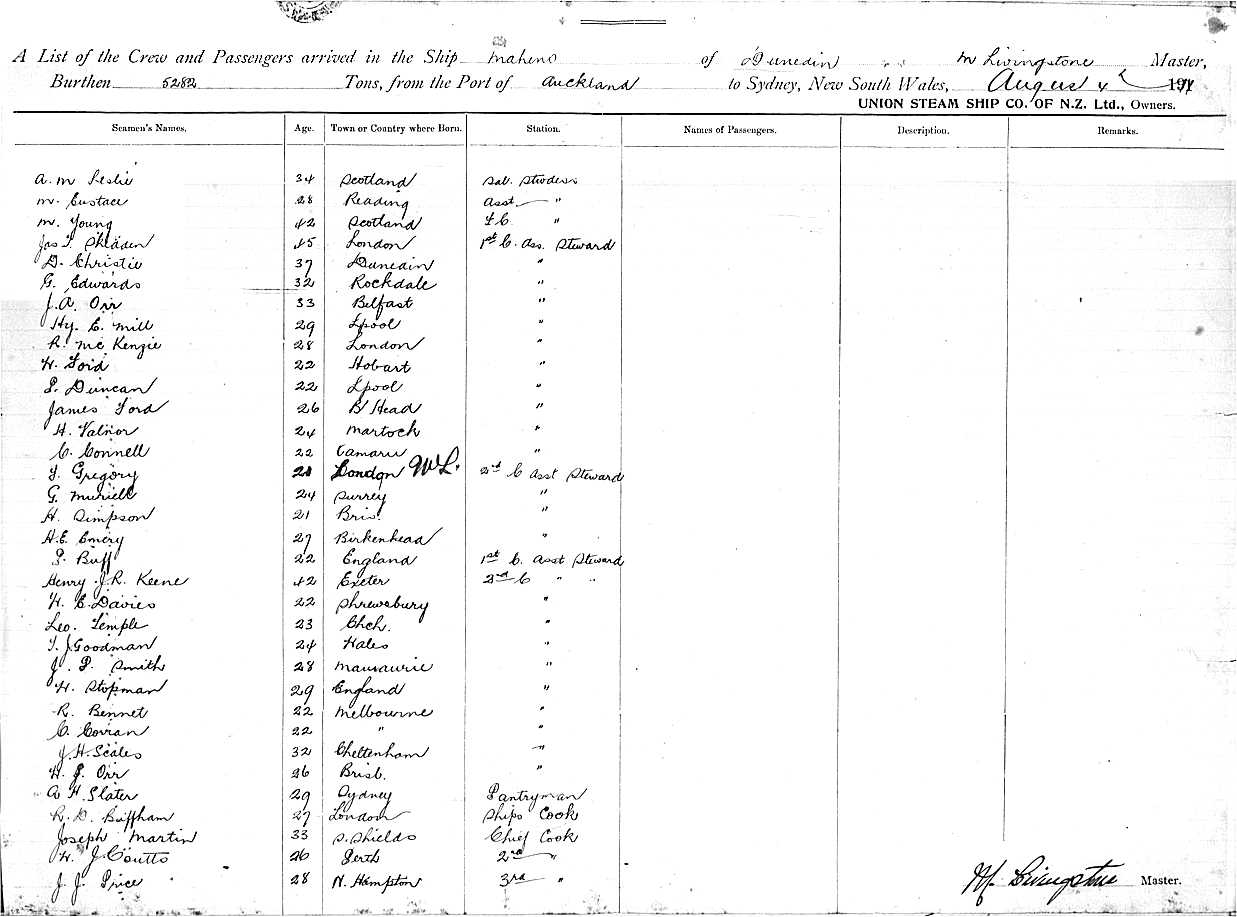 A List of the Crew and Passengers arrived in the Ship Maheno of Dunedin M Livingstone Master,
Burthen 5282 Tons, from the Port of Auckland to Sydney, New South Wales, August 4 191
UNION STEAM SHIP CO. OF N.Z. Ltd., Owners.
Seamen's Names. Age. Town or Country where Born. Station. Names of Passengers. Description. Remarks.
A. M Leslie 34 Scotland Sal. Stwdess
M. Eustace 28 Reading Asst "
M. Young 42 Scotland "
Jas T. Skladen 45 London 1st C. Ass. Steward
D. Christie 37 Dunedin "
G. Edwards 32 Rockdale "
J. A. Orr 33 Belfast "
Hy. C. Mill 29 Lpool "
R. McKenzie 28 London "
H. Ford 22 Hobart "
P. Duncan 22 Lpool "
James Ford 26 B Head "
H. Valnor 24 Martock "
C. Connell 22 Oamaru "
T. Gregory 21 London ML. 2nd C Asst Steward
G. Muriell 24 Surrey "
H. Simpson 21 Bris. "
H. E. Emery 27 Birkenhead "
P. Buff 22 England 1st C. Asst Steward
Henry J. R. Keene 42 Exeter 2nd C " "
H. E. Davies 22 Shrewsbury "
Leo. Temple 23 Chch. "
T. J. Goodman 24 Wales "
J. P. Smith 28 "
H. Stopman 29 England "
R. Bennet 22 Melbourne "
C. 22 " "
J. H. Scales 32 Cheltenham "
H. J. Orr 26 Brisb. "
A H. Slater 29 Sydney Pantryman
R. D. Buffham 27 London Ships Cook
Joseph Martin 33 S. Shields Chief Cook
H. J. Coutts 26 Perth 2nd "
J. J. Price 28 N. Hampton 3rd "
M. Livingstone Master.